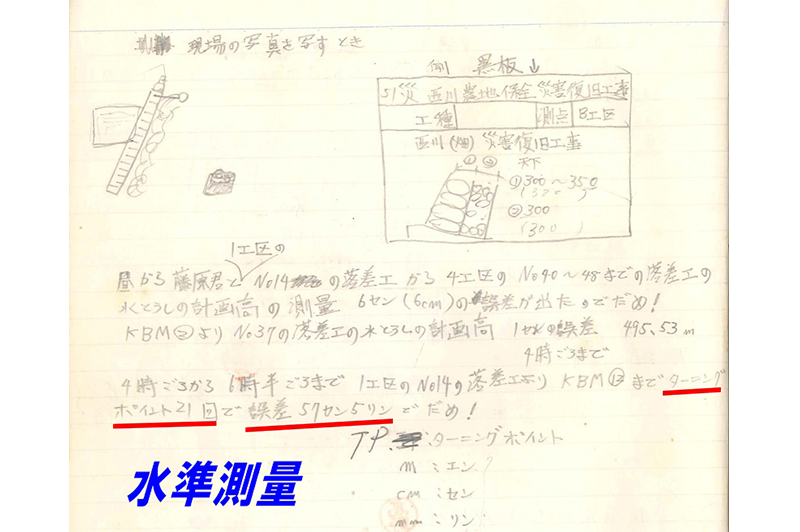 現場の写真を写すとき
例 黒板↓
51災 西川農地保全 災害復旧工事
工種 測点 B工区
西川(畑)災害復旧工事
① ② 天下
①300～350
②300
(300)
1工区の
昼から藤原君と No14の落差工から4工区の No40～48までの落差工の
水とうしの計画高の測量 6セン(6cm)の誤差が出たのでだめ!
KBM②より No37の落差工の水とうしの計画高 1センの誤差 495.53m
4時ごろまで
4時ごろから6時半ごろまで 1工区のNo14の落差工より KBM⑬まで ターニング
ポイント21回で誤差57セン5リンでだめ!
TP. : ターニングポイント
m : エン
cm : セン
mm : リン
水準測量